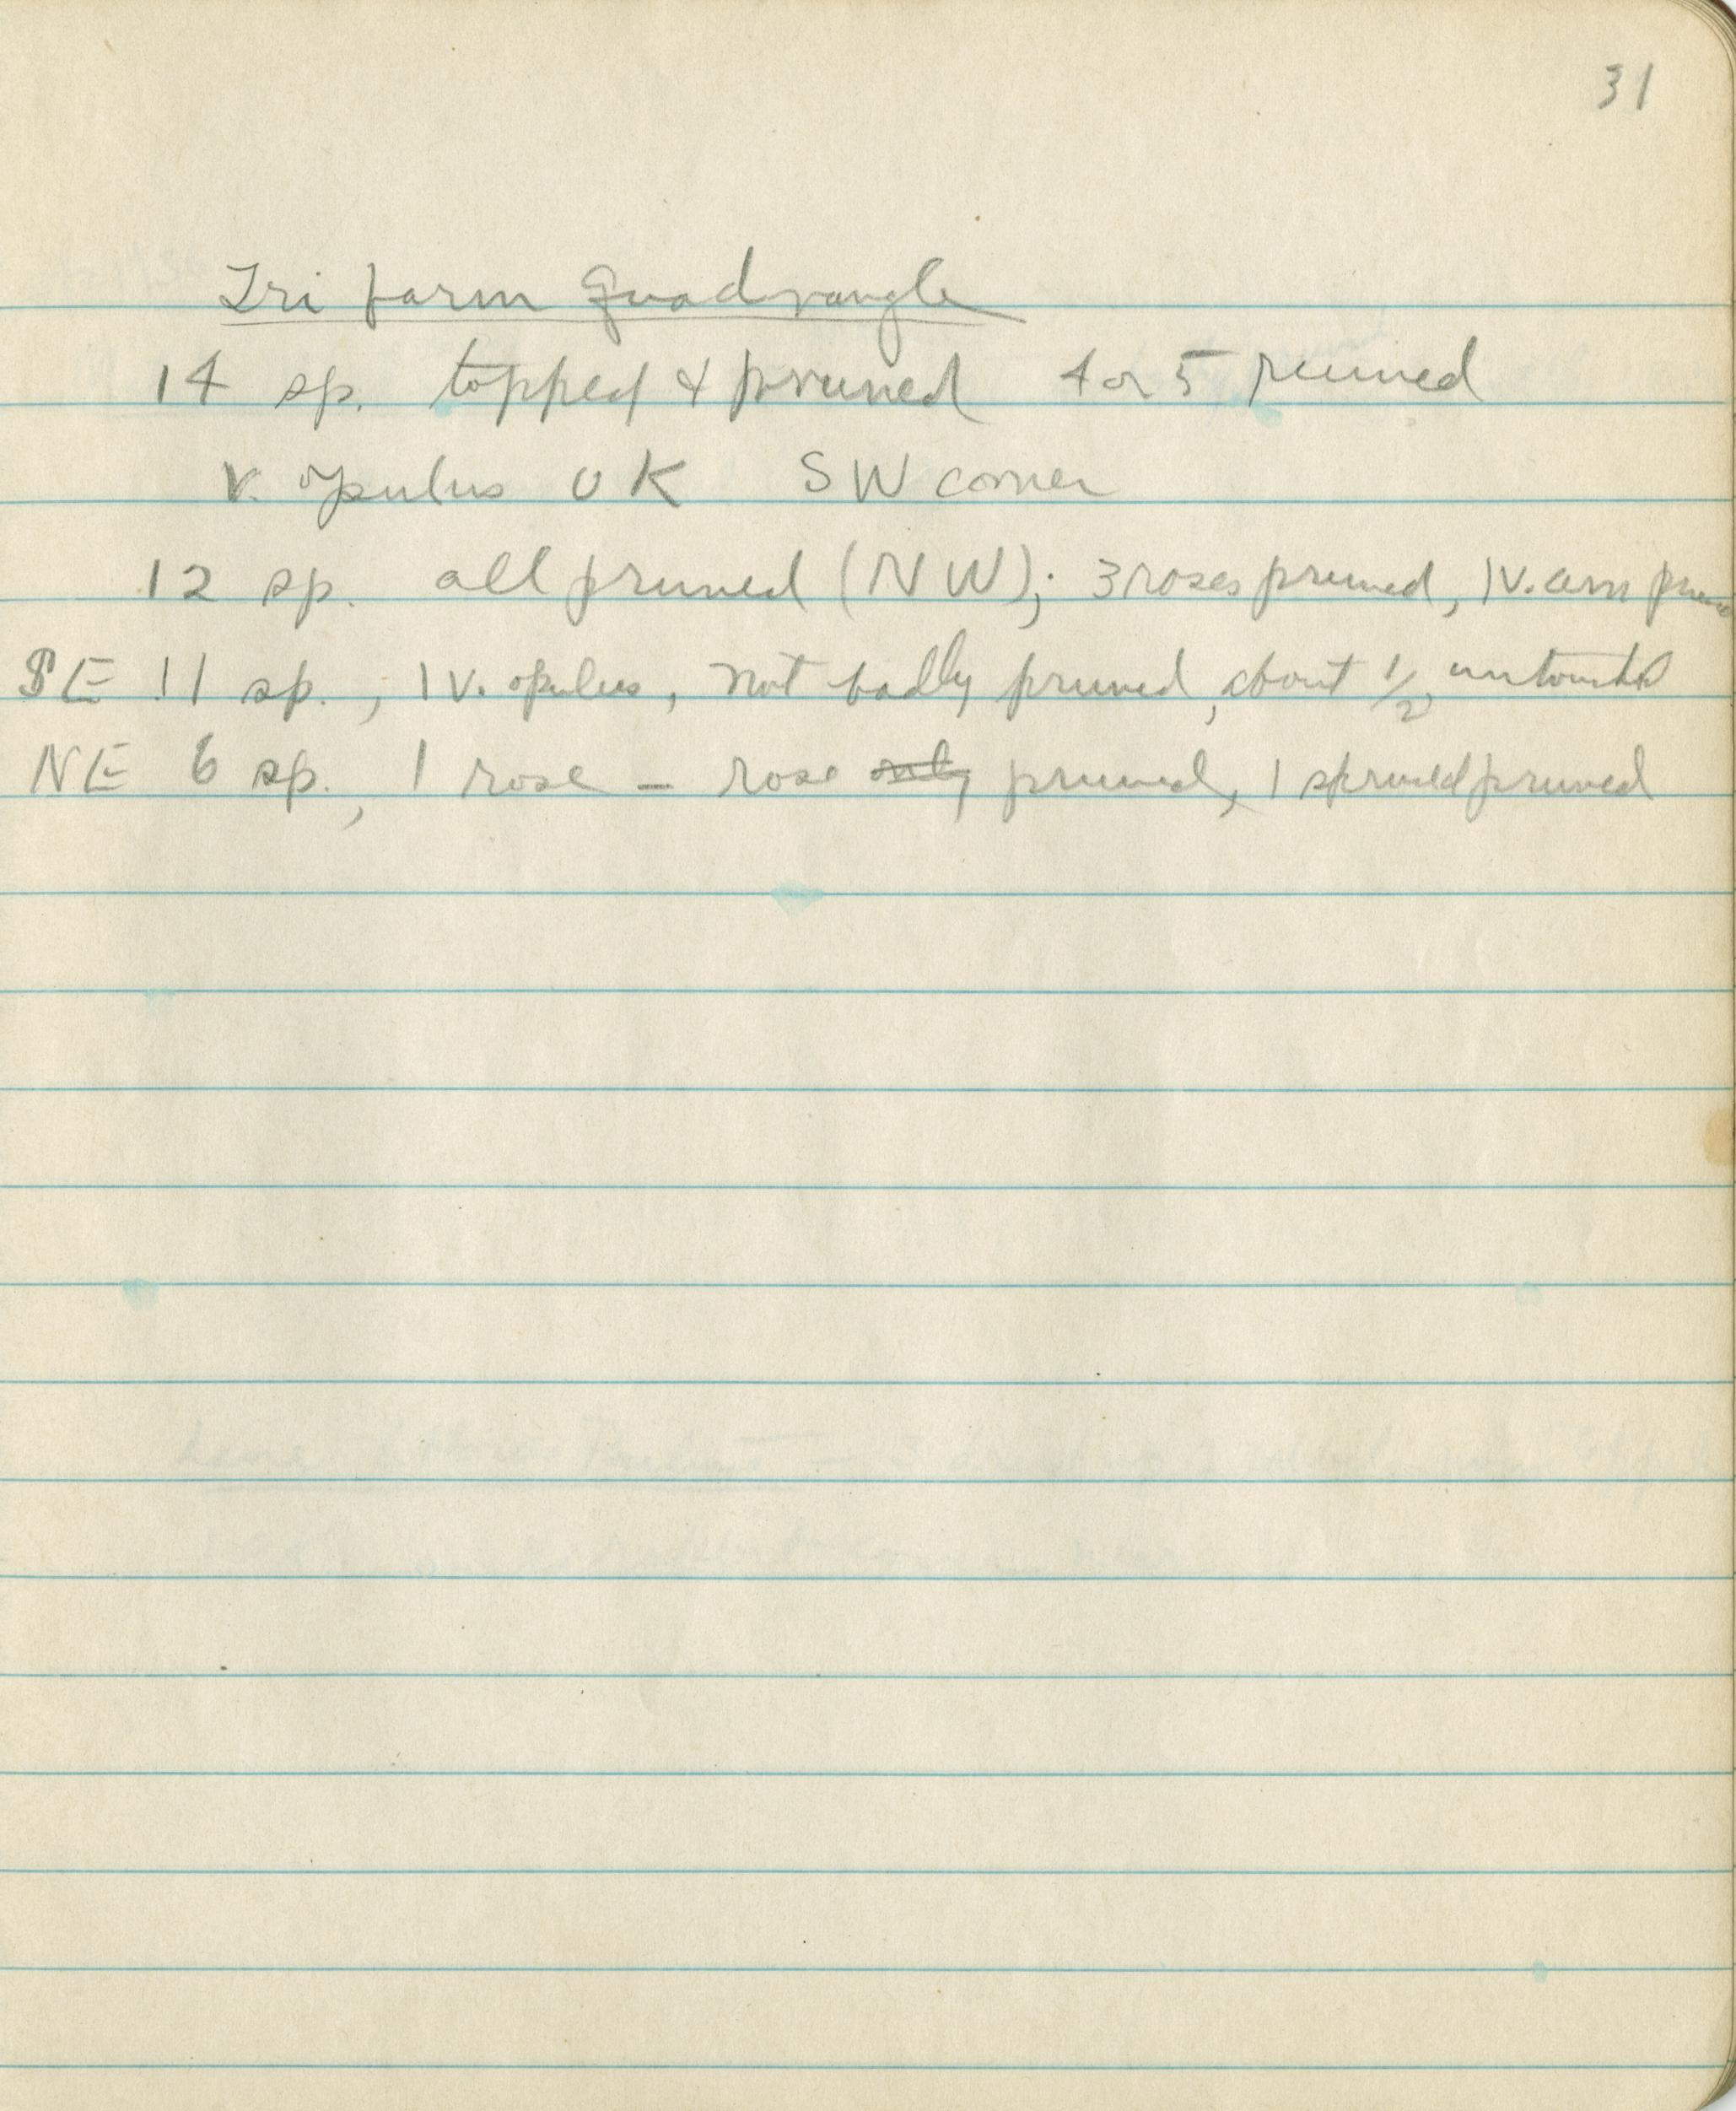 31
Tri farm quadrangle
14 sp. topped & pruned 4 or 5 ruined
V. opulus OK SW corner
12 sp. all pruned (NW); 3 roses pruned, 1 V. am pruned
SE 11 sp.; 1 V. opulus, not badly pruned, about 1/2 untouched
NE 6 sp., 1 rose - rose only pruned, 1 spruce pruned